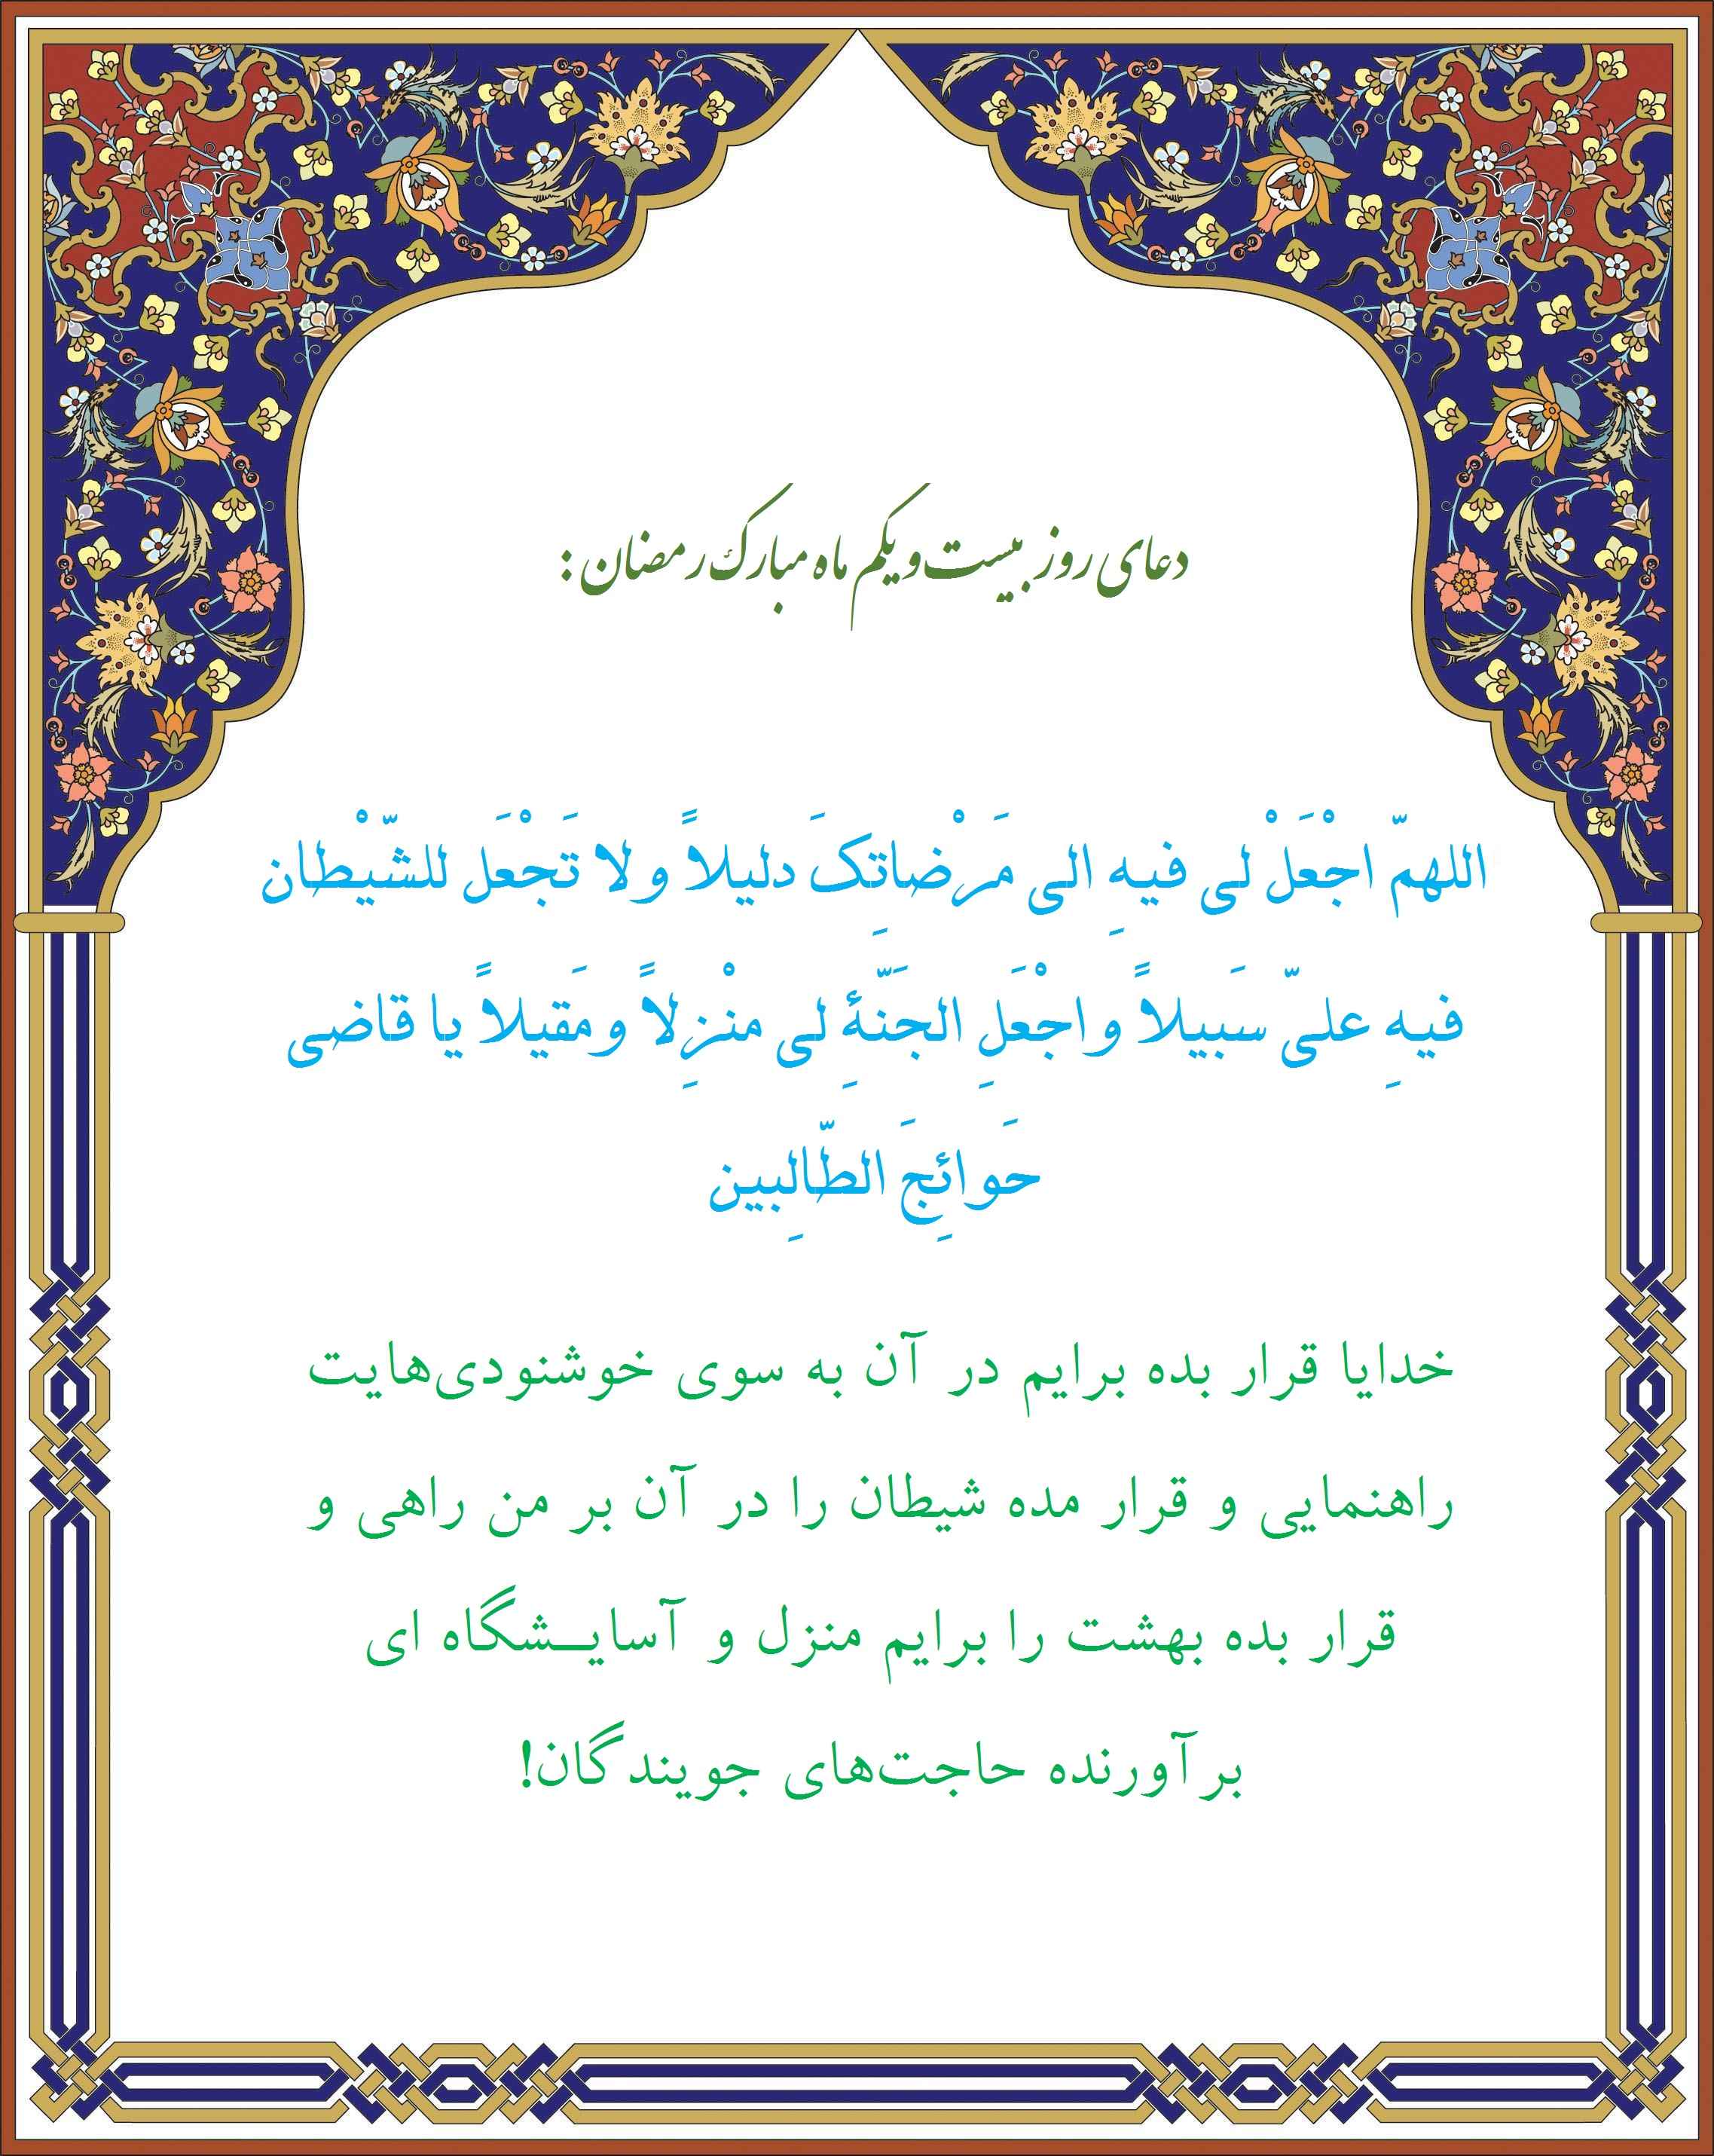 دعای روز بیست و یکم ماه مبارک رمضان :
اللهمّ اجْعَلْ لی فیهِ الی مَرْضاتِکَ دلیلاً ولا تَجْعَل للشّیْطان
فیهِ علیّ سَبیلاً واجْعَلِ الجَنّهَٔ لی منْزِلاً ومَقیلاً یا قاضی
حَوائِجَ الطّالِبین
خدایا قرار بده برایم در آن به سوی خوشنودی‌هایت
راهنمایی و قرار مده شیطان را در آن بر من راهی و
قرار بده بهشت را برایم منزل و آسایــشگاه ای
برآورنده حاجت‌های جویندگان!